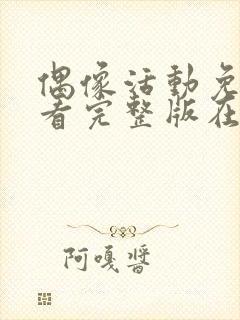 偶像活動免
看完整版在
阿嘎醬